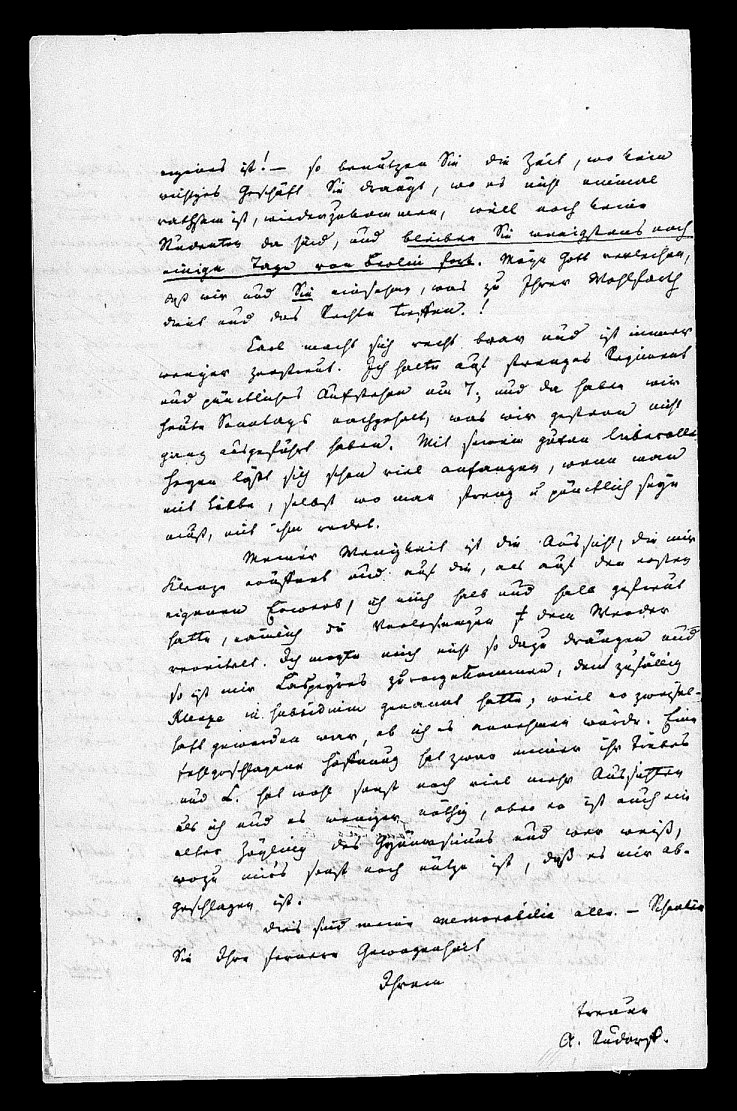 eigenes ist! – so benutzen Sie die Zeit, wo kein
wichtiges Geschäft Sie drängt, wo es nicht einmal
rathsam ist, wiederzukommen, weil noch keine
Studenten da sind, und bleiben Sie wenigstens noch
einige Tage von Berlin fort. Möge Gott verleihen,
daß wir und Sie einsehen, was zu Ihrer Wohlfarth
dient und das Rechte treffen!
Carl macht sich recht brav und ist immer
weniger zerstreut. Ich halte auf strenges Regiment
und pünctliches Aufstehen um 7, und da haben wir
heute Sonntags nachgeholt, was wir gestern nicht
ganz ausgeführt haben. Mit seinem guten liebevollen
Herzen läßt sich schon viel anfangen, wenn man
mit Liebe, selbst wo man streng u pünctlich seyn
muß, mit ihm redet.
Meiner Wenigkeit ist die Aussicht, die mir
Klenze eröffnet und auf die, als auf den ersten
eigenen Erwerb, ich mich halb und halb gefreut
hatte, nämlich die Vorlesungen dem Werder
vereitelt. Ich mogte mich nicht so dazu drängen und
so ist mir Laspeyres zuvorgekommen, den zufällig
Klenze in genannt hatte, weil es zweifel-
haft geworden war, ob ich es annehmen würde. Eine
fehlgeschlagene Hoffnung hat zwar immer ihr Trübes
und L. hat wohl sonst noch viel mehr Aussichten
als ich und es weniger nöthig, aber er ist auch ein
alter Zögling des Gymnasiums und wer weiß,
wozu mir's sonst noch nütze ist, daß es mir ab-
geschlagen ist.
Dies sind meine memorabilia alle. – Schenken
Sie Ihre fernere Gewogenheit
Ihrem
treuen
A. Rudorff.